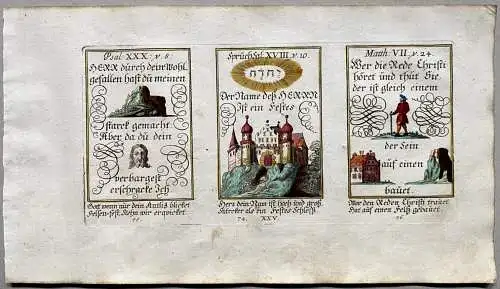 Psal. XXX. v. 8.
HERR dürch dein Wohl
gefallen hast dü meinen
starck gemacht
Aber da dü dein
verbargest
erschracke Ich
Gott wenn nur dein Antlitz blicket
Felsen-fest, Kühn wir erquicket
Sprüch Sal. XVIII. v. 10.
יהוה
Der Name deß HERRN
Ist ein Festes
Herr dein Nam ist hoch und groß
Stärcker als ein Festes Schloß
74.
XXV.
Matth. VII. v. 24.
Wer die Rede Christi
höret und thüt Sie
der ist gleich einem
der Sein
auf einen
baüet.
Wer den Reden Christi trauet
Hat auf einen Felß gebauet.